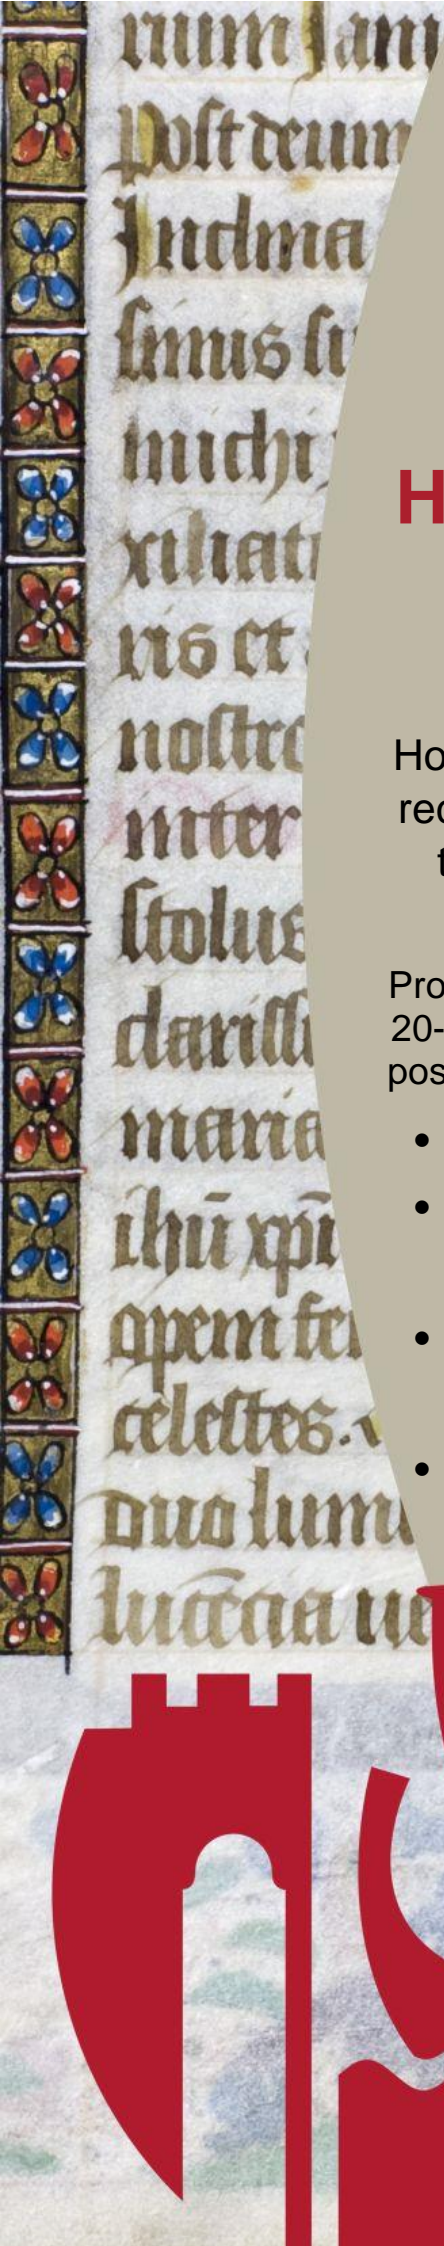 poſt deum
Inclina
ſimis ſu
michi
xiliat
ris et
noſtro
inter
ſtolus
clariſſi
maria
ihū xp̄i
opem fer
celeſtes.
duo lumi
lucēcia ue
H
Ho
rec
t
Pro
20-
pos
•
•
•
•